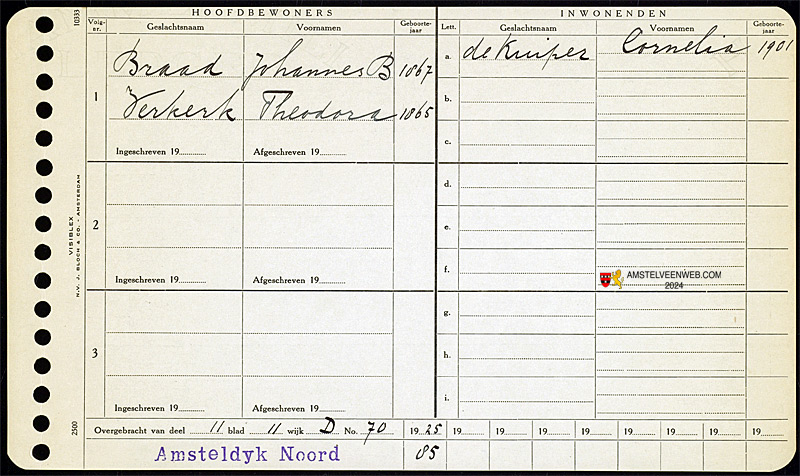 10333
HOOFDBEWONERS
INWONENDEN
Volg-nr. Geslachtsnaam Voornamen Geboorte-jaar
Lett. Geslachtsnaam Voornamen Geboorte-jaar
1 Braad Johannes B 1867
Verkerk Theodora 1865
Ingeschreven 19 Afgeschreven 19
2
Ingeschreven 19 Afgeschreven 19
3
Ingeschreven 19 Afgeschreven 19
a. de Kuiper Cornelia 1901
b.
c.
d.
e.
f.
AMSTELVEENWEB.COM
2024
g.
h.
i.
VISIBLEX
N.V. J. BLOCH & CO. - AMSTERDAM
2500
Overgebracht van deel 11 blad 11 wijk D No. 70 1925 19 19 19 19 19 19 19 19
Amsteldyk Noord 85